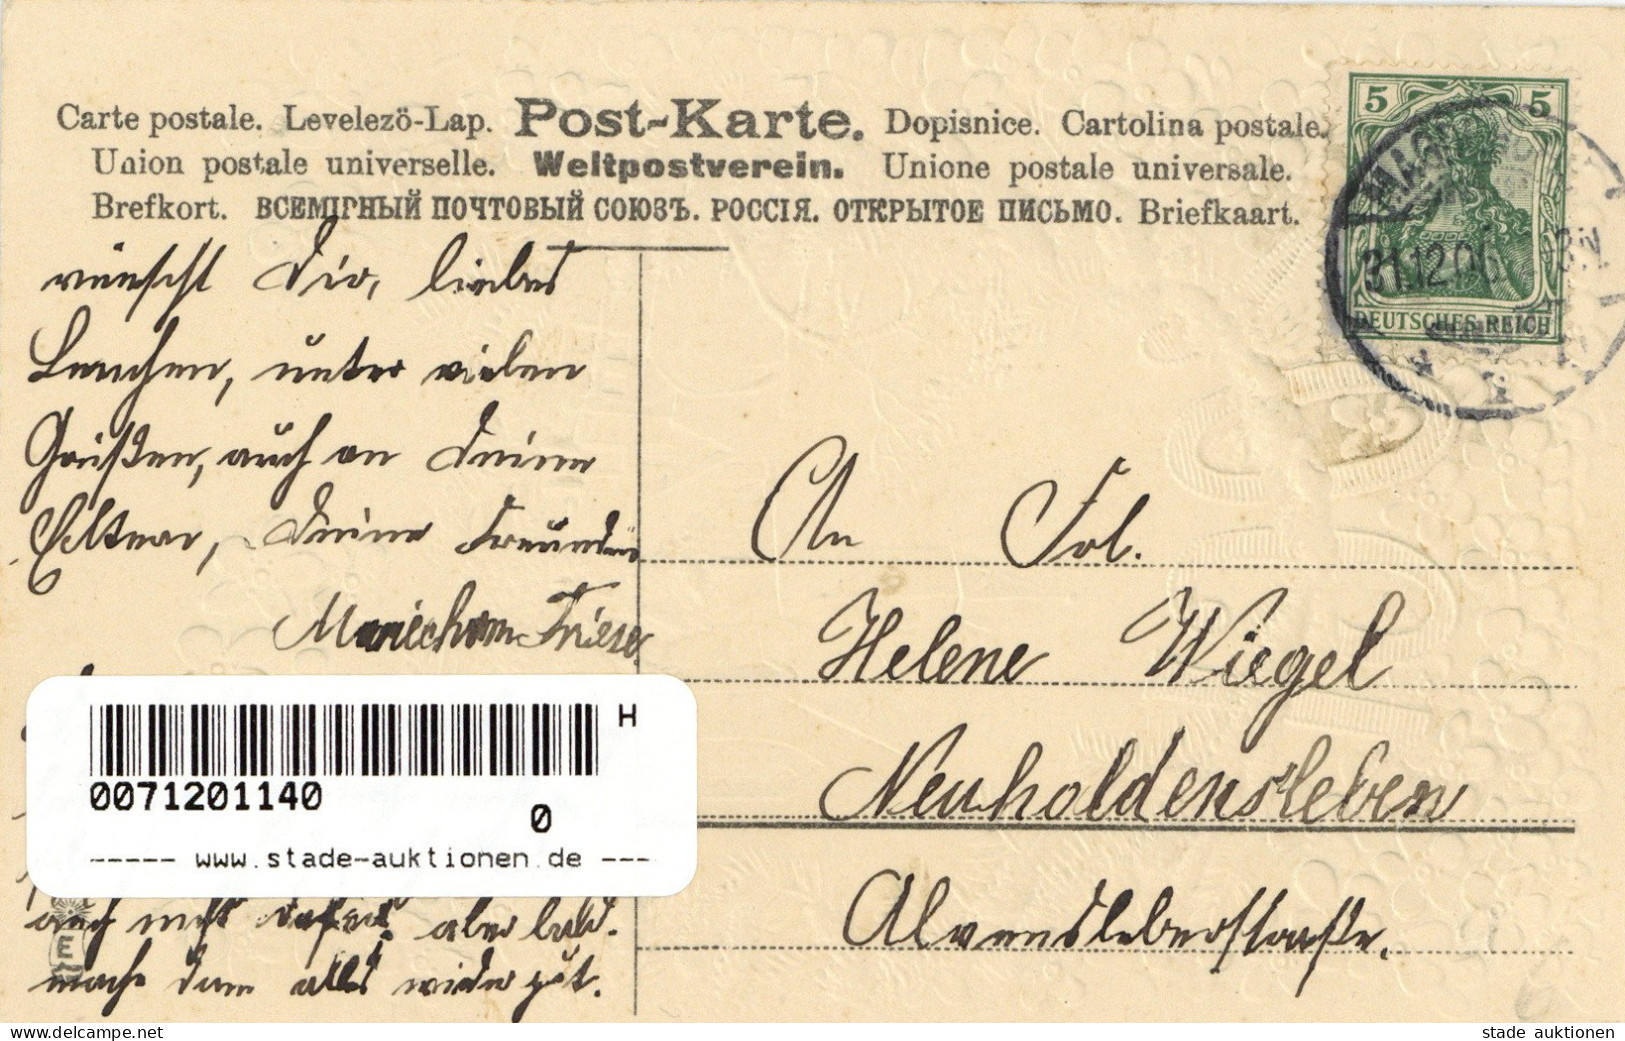 Carte postale. Levelezö-Lap. Post-Karte. Dopisnice. Cartolina postale.
Union postale universelle. Weltpostverein. Unione postale universale.
Brefkort. ВСЕМІРНЫЙ ПОЧТОВЫЙ СОЮЗЪ. РОССІЯ. ОТКРЫТОЕ ПИСЬМО. Briefkaart.
5 5
DEUTSCHES REICH
31.12.06
wünscht Dir, liebes
Lenchen, unter vielen
Grüßen, auch an Deine
Eltern, Deine Freundin
Mariechen Friese
An Frl.
Helene Wiegel
Neuhaldensleben
Alvenslebenstraße.
H
0071201140
0
----- www.stade-auktionen.de ---
auch nicht aber bald.
mache dann alles wieder gut.
stade auktionen